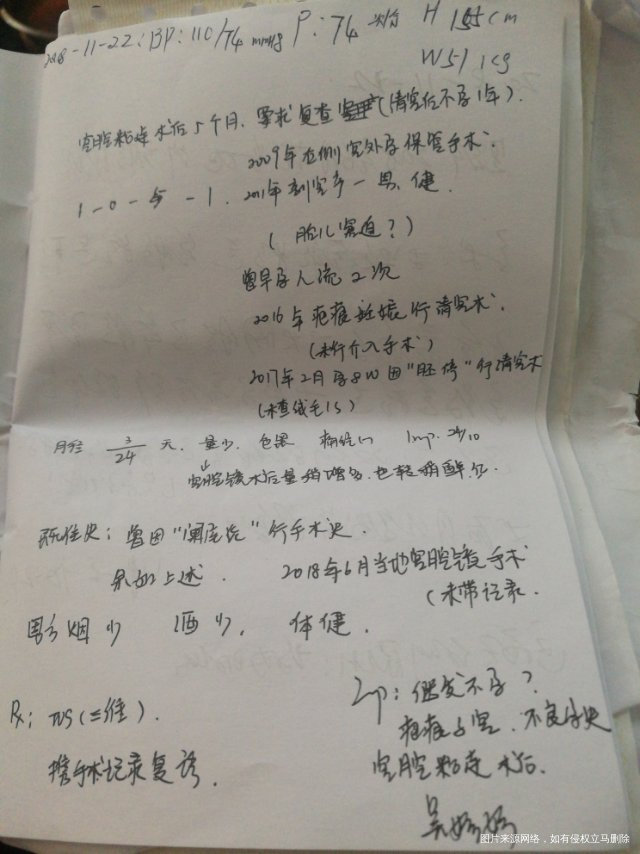 2018-11-22: BP: 110/74 mmHg P: 74次/分 H 155cm
W 51 kg
宫腔粘连术后5个月, 要求复查 (清宫后不孕1年).
2009年右侧宫外孕保守手术.
1-0-5-1. 2011年剖宫产一男, 健.
(胎儿窘迫?)
曾早孕人流2次
2016年疤痕妊娠行清宫术.
(未行介入手术)
2017年2月孕8W因"胚停"行清宫术
(未查绒毛)
月经 3/24 天. 量少. 色黑 痛经(-) lmp.
宫腔镜术后量稍增多, 色轻稍鲜红.
既往史: 曾因"阑尾炎"行手术史.
余如上述. 2018年6月当地宫腔镜手术
(未带记录.
男方烟少 酒少, 体健.
Imp: 继发不孕?
Rx: TVS(三维). 疤痕子宫. 不良孕史
携手术记录复诊. 宫腔粘连术后.
图片来源网络,如有侵权立马删除